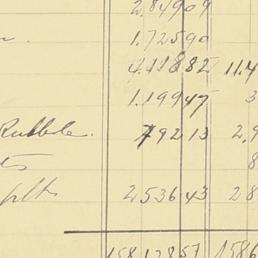 2.84909
1.72590
4.11882 11.4
1.19947 3
Rubble. 79213 2.9
8
2.53643 28
15812857 1586